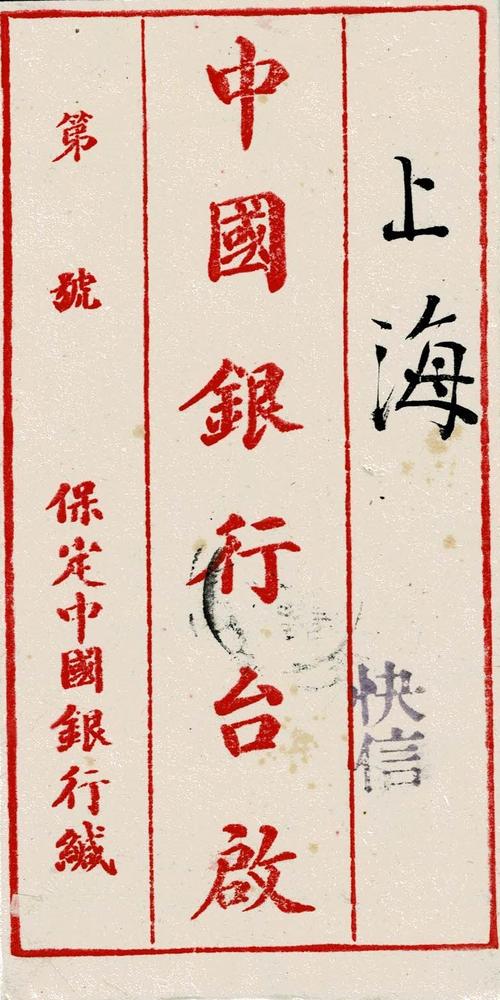 上海
快信
中國銀行台啟
第 號
保定中國銀行緘